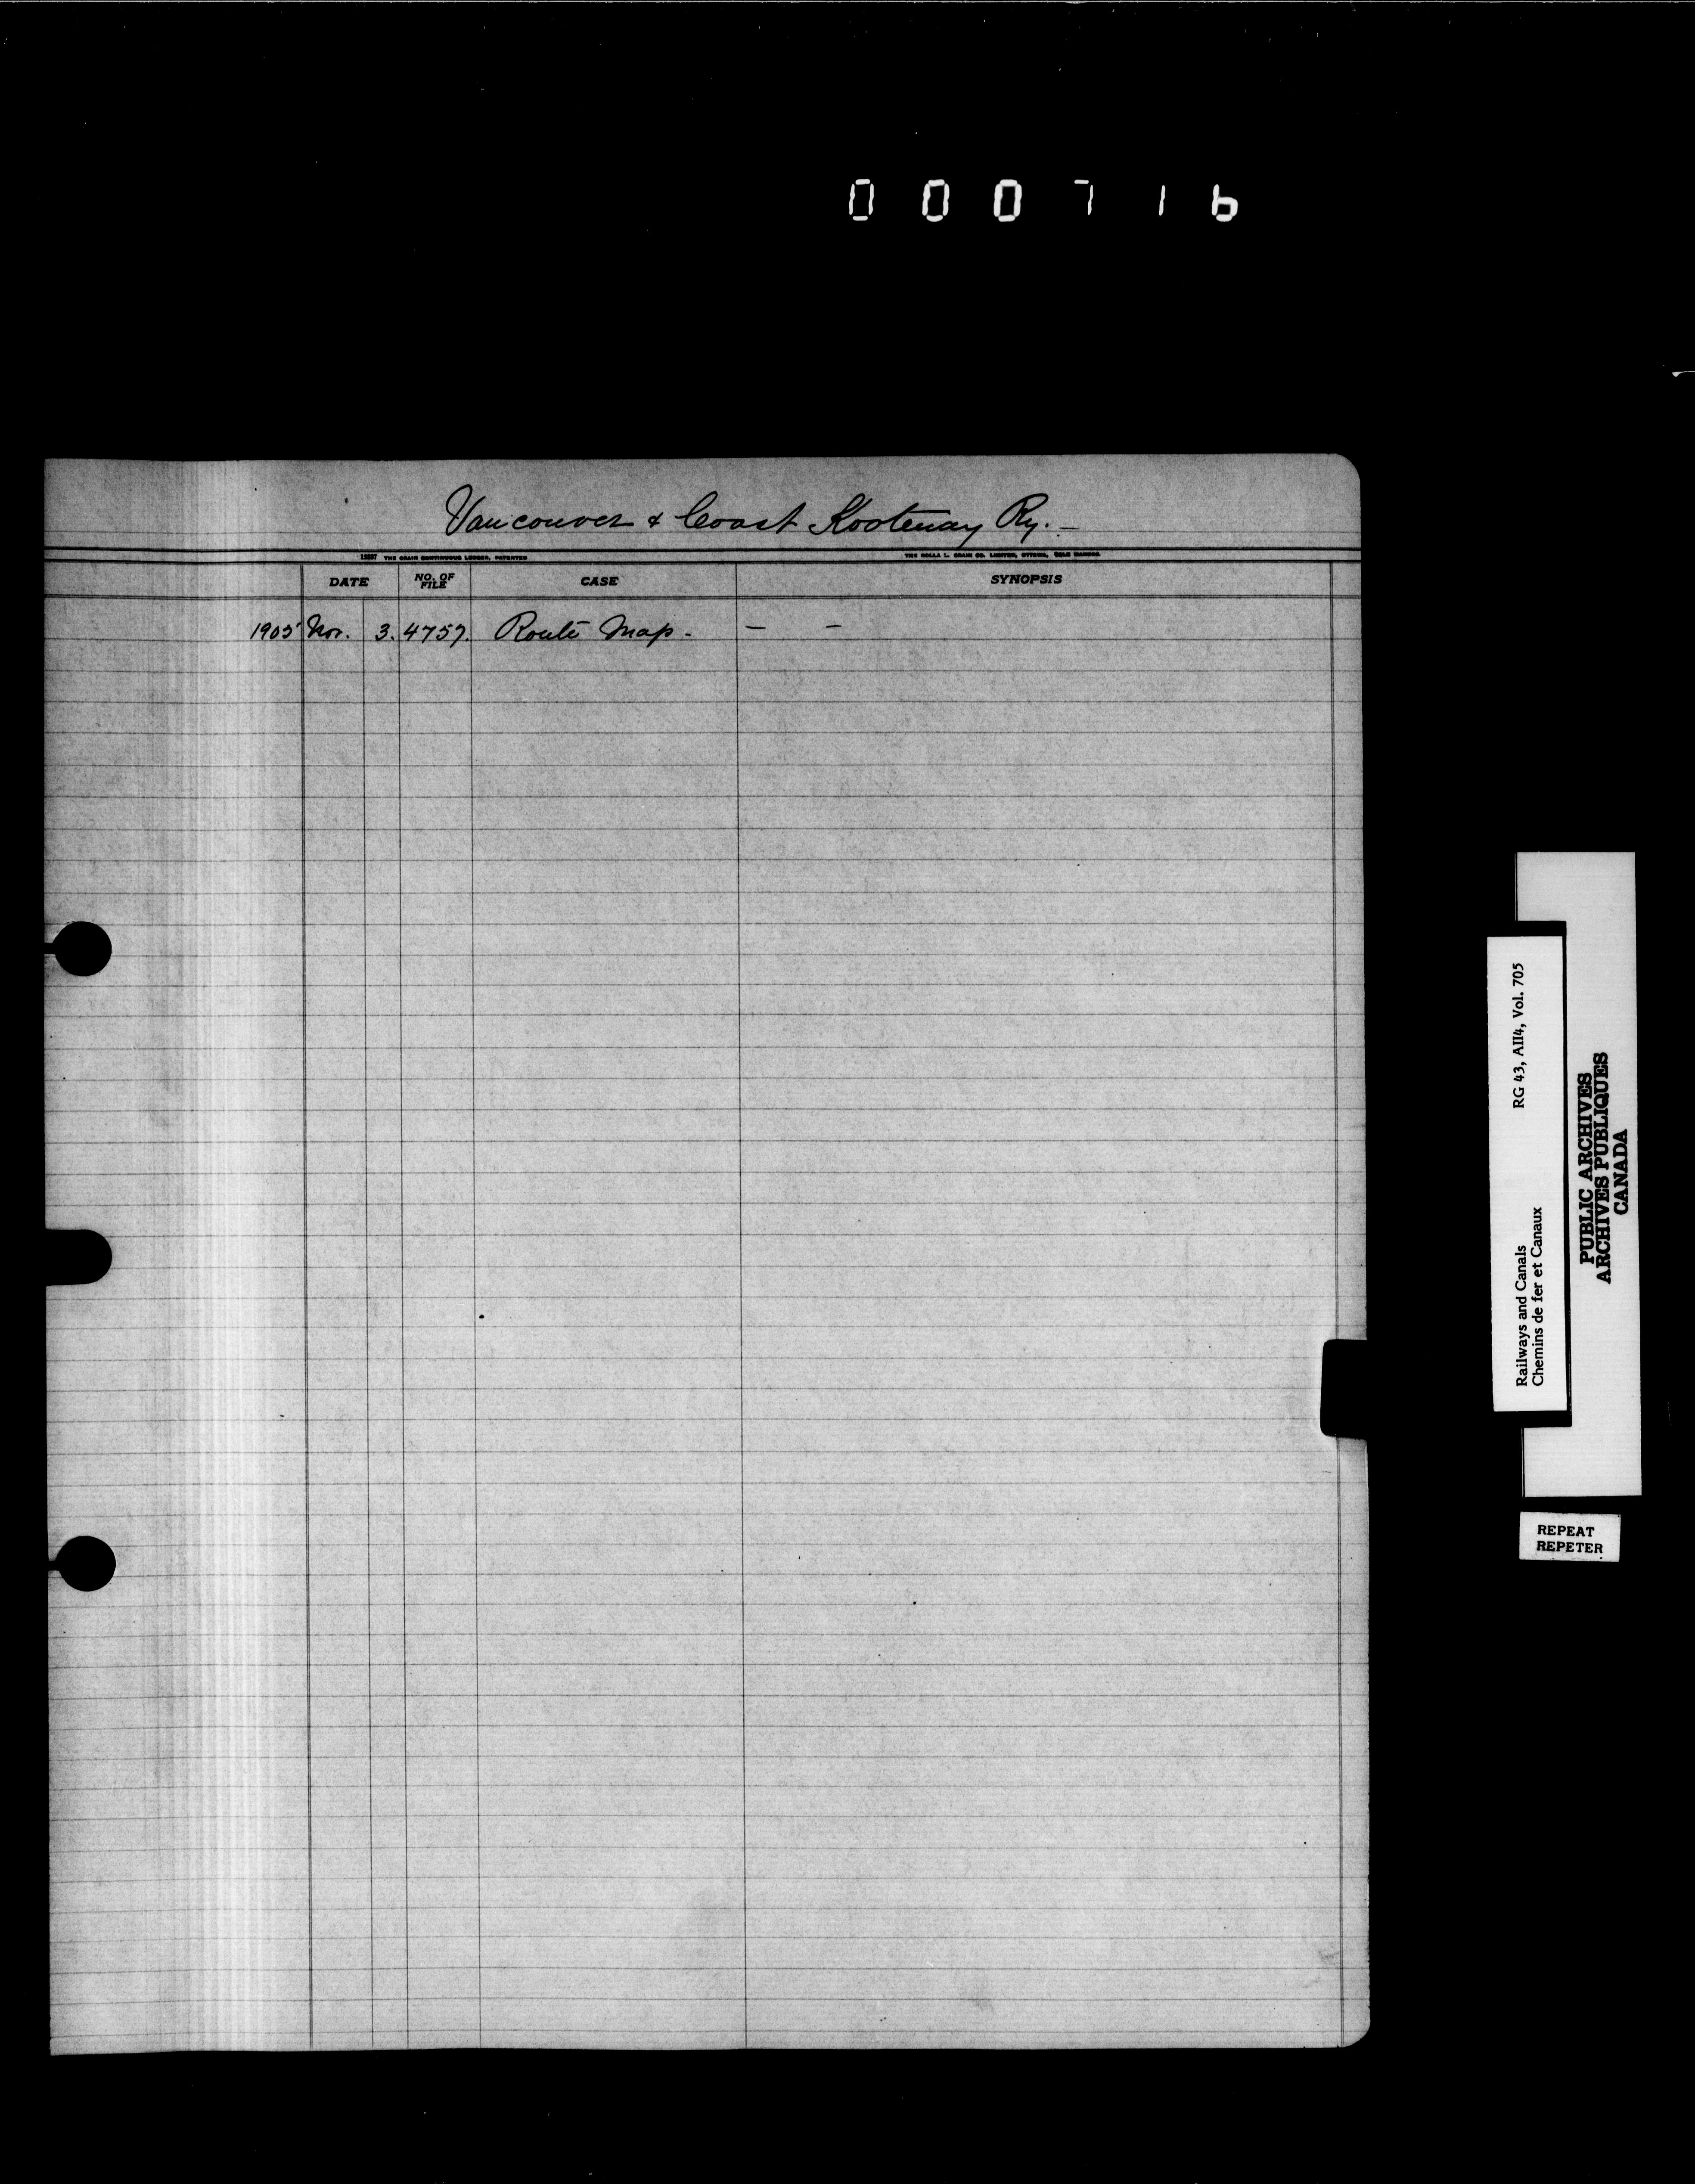 000716
Vancouver & Coast Kootenay Ry. –
12597 THE CRAIN CONTINUOUS LEDGER, PATENTED THE ROLLA L. CRAIN CO. LIMITED, OTTAWA, SOLE MAKERS.
DATE NO. OF FILE CASE SYNOPSIS
1905 Nov. 3. 4757. Route Map. – –
RG 43, AII4, Vol. 705
Railways and Canals
Chemins de fer et Canaux
PUBLIC ARCHIVES
ARCHIVES PUBLIQUES
CANADA
REPEAT
REPETER